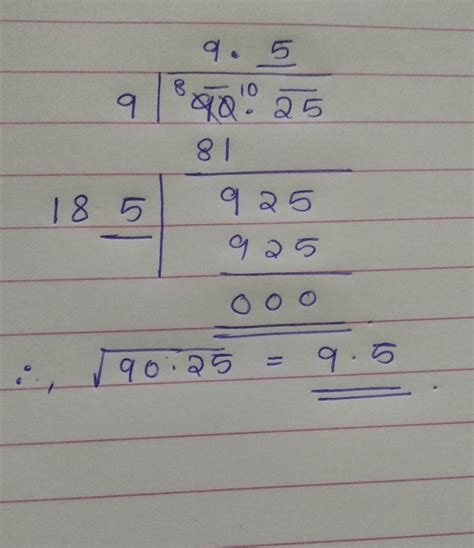 9. 5
9 8 90 10 . 25
81
18 5 925
925
000
∴, √90.25 = 9.5.